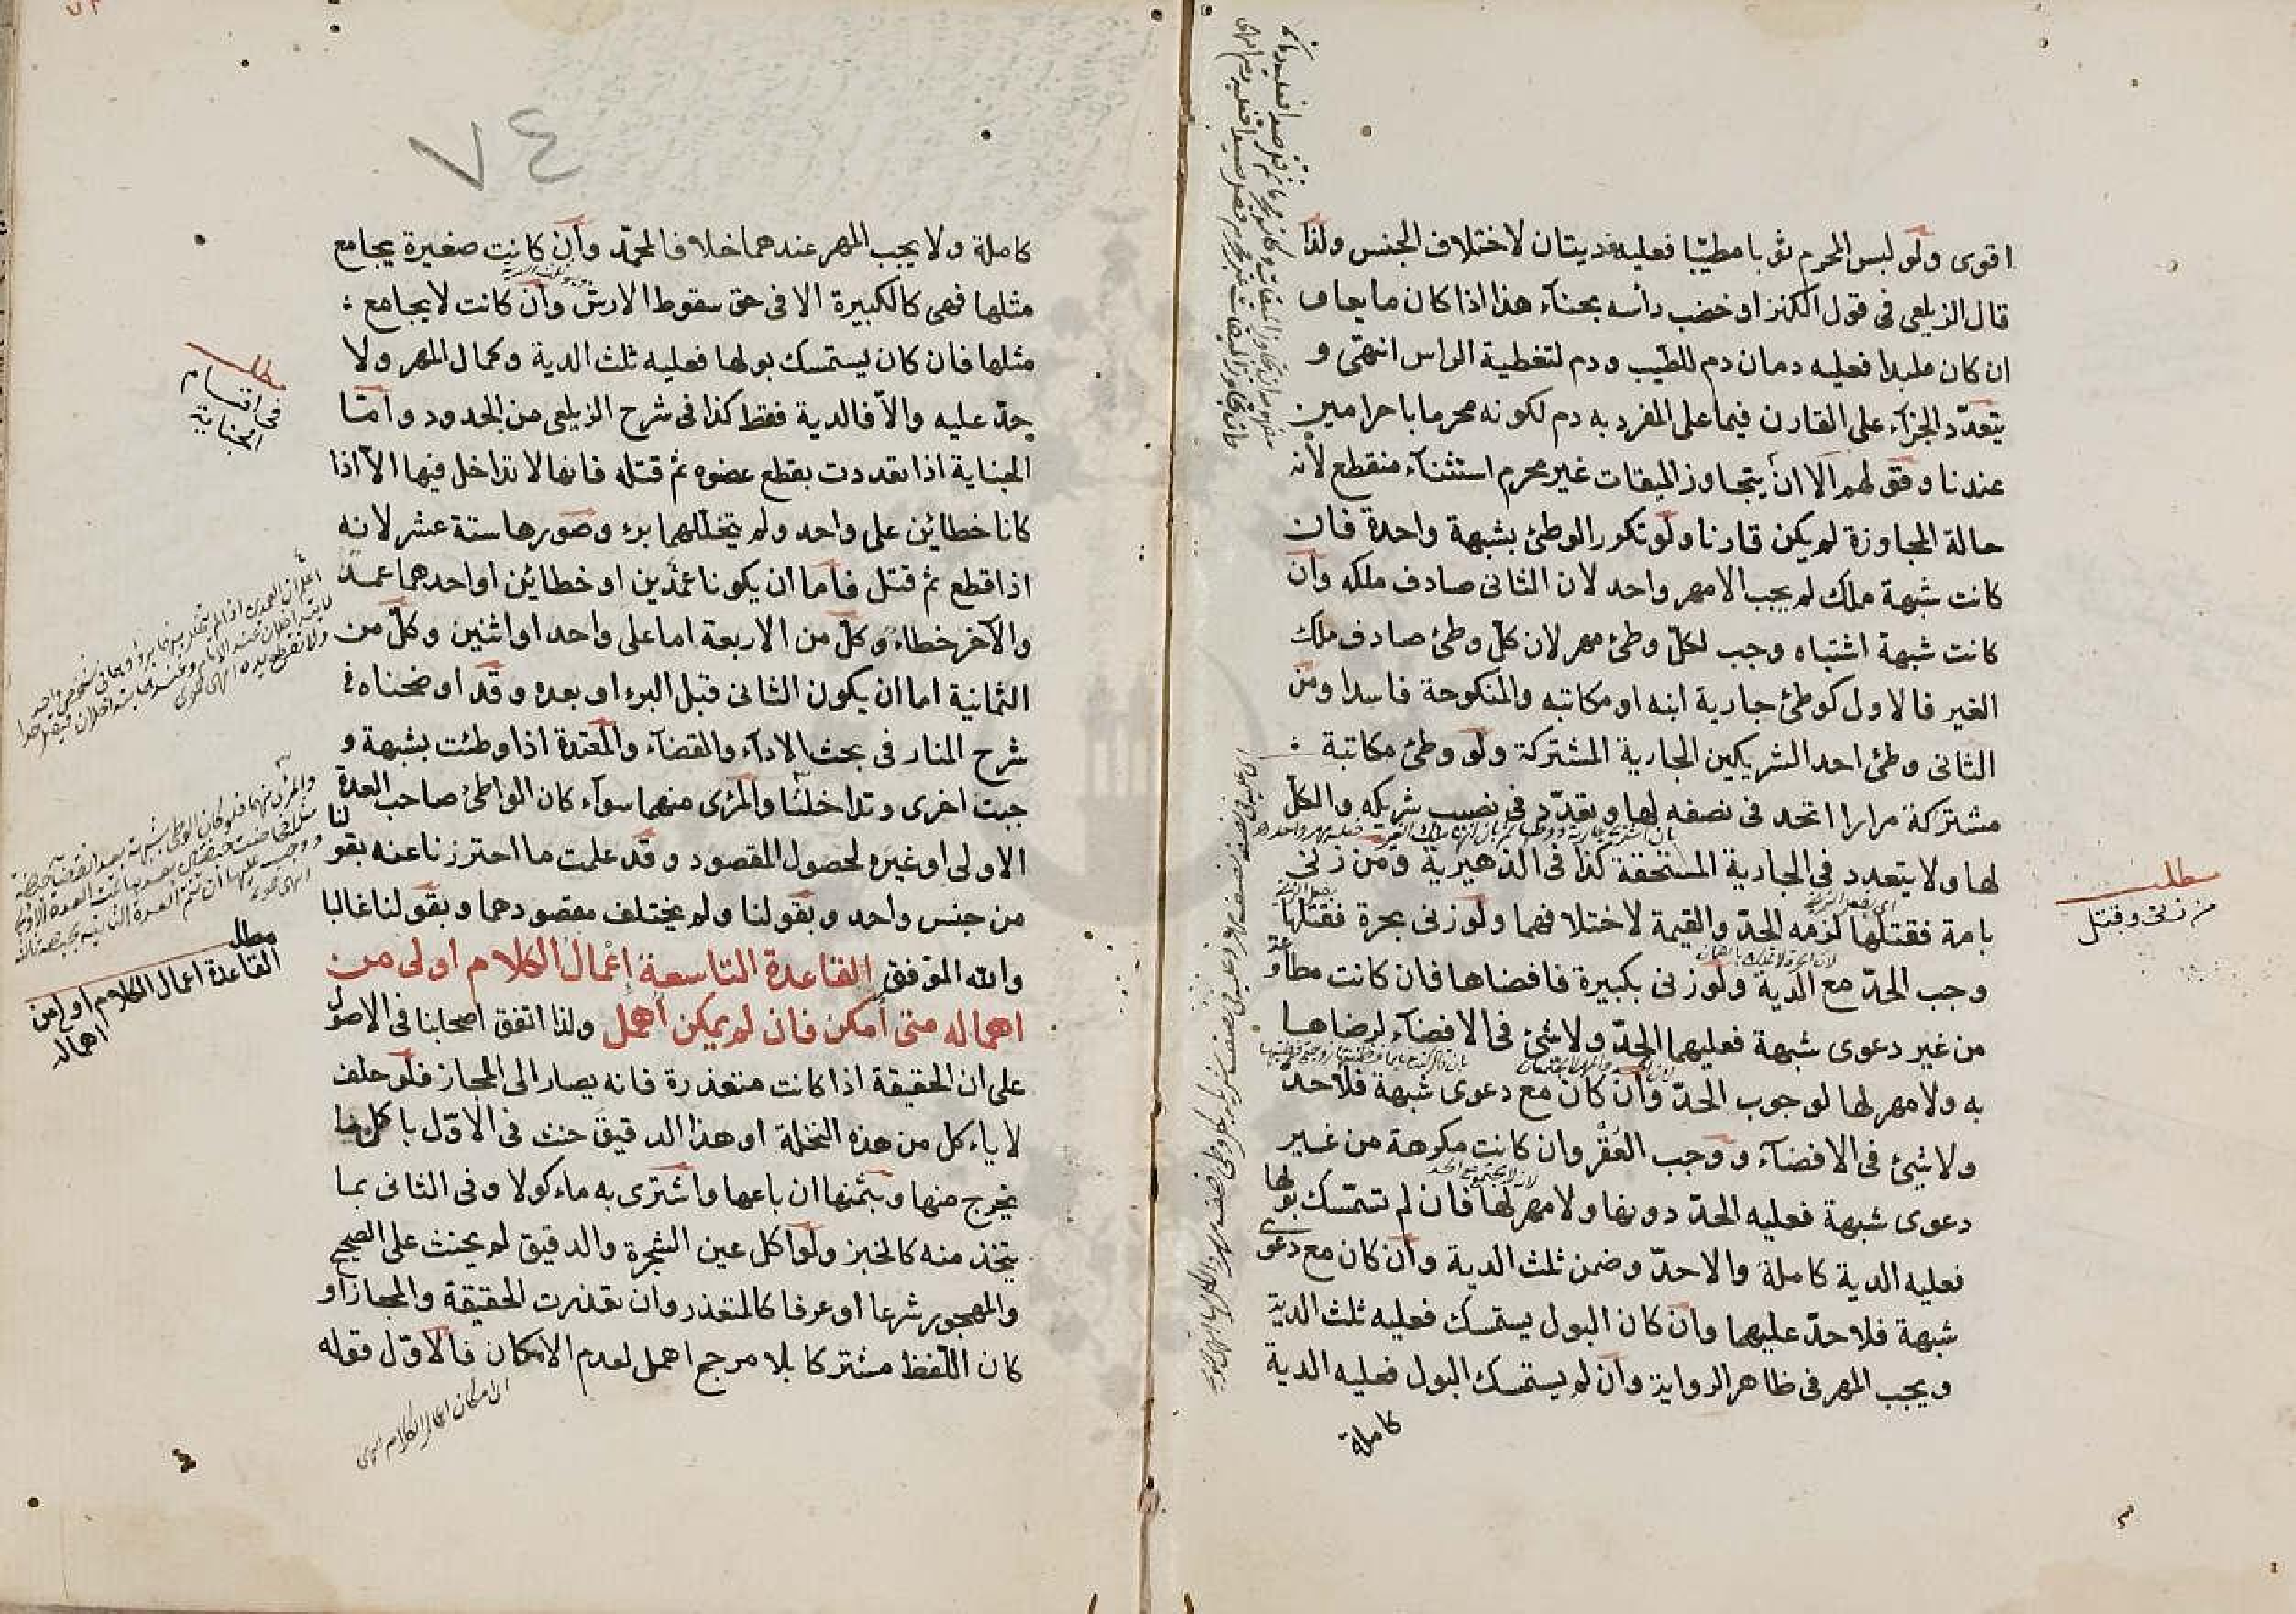 اقوى ولو لبس المحرم ثوبا مطيبا فعليه فديتان لاختلاف الجنس ولذا
قال الزيلعي في قول الكنز او خضب رأسه بحناء هذا اذا كان مايعا
ان كان ملبدا فعليه دمان دم للطيب ودم لتغطية الراس انتهى و
يتعدد الجزآء على القارن فيما على المفرد به دم لكونه محرما باحرامين
عندنا وقولهم الا ان يتجاوز الميقات غير محرم استثنآء منقطع لأنه
حالة المجاوزة لم يكن قارنا ولو تكرر الوطئ بشبهة واحدة فان
كانت شبهة ملك لم يجب الا مهر واحد لان الثاني صادف ملكه وان
كانت شبهة اشتباه وجب لكل وطئ مهر لان كل وطئ صادف ملك
الغير فالاول كوطئ جارية ابنه او مكاتبه والمنكوحة فاسدا ومن
الثاني وطئ احد الشريكين الجارية المشتركة ولو وطئ مكاتبة
مشتركة مرارا اتحد في نصفه لها وتعدد في نصيب شريكه والكل
لها ولا يتعدد في الجارية المستحقة كذا في الظهيرية ومن زنى
بامة فقتلها لزمه الحد والقيمة لاختلافهما ولو زنى بحرة فقتلها
وجب الحد مع الدية ولو زنى بكبيرة فافضاها فان كانت مطاوعة
من غير دعوى شبهة فعليهما الحد ولا شئ في الافضآء لرضاها
به ولا مهر لها لوجوب الحد وان كان مع دعوى شبهة فلا حد
ولا شئ في الافضآء ووجب العقر وان كانت مكرهة من غير
دعوى شبهة فعليه الحد دونها ولا مهر لها فان لم تستمسك بولها
فعليه الدية كاملة والا حد وضمن ثلث الدية وان كان مع دعوى
شبهة فلا حد عليهما وان كان البول يستمسك فعليه ثلث الدية
ويجب المهر في ظاهر الرواية وان لم يستمسك البول فعليه الدية
كاملة
مطلب
من زنى وقتل
٧٤
كاملة ولا يجب المهر عندهما خلافا لمحمد وان كانت صغيرة يجامع
مثلها فهي كالكبيرة الا في حق سقوط الارش وان كانت لا يجامع
مثلها فان كان يستمسك بولها فعليه ثلث الدية وكمال المهر ولا
حد عليه والا فالدية فقط كذا في شرح الزيلعي من الحدود واما
الجناية اذا تعددت بقطع عضوه ثم قتله فانها لا تداخل فيها الا اذا
كانا خطائين على واحد ولم يتخللهما برء وصورها ستة عشر لانه
اذا قطع ثم قتل فاما ان يكونا عمدين او خطائين او احدهما عمد
والآخر خطاء وكل من الاربعة اما على واحد او اثنين وكل من
الثمانية اما ان يكون الثاني قبل البرء او بعده وقد اوضحناه في
شرح المنار في بحث الادآء والقضآء والمعتدة اذا وطئت بشبهة و
جبت اخرى وتداخلتا والمرئى منهما سوآء كان الواطئ صاحب العدة
الاولى او غيره لحصول المقصود وقد علمت ما احترزنا عنه بقولنا
من جنس واحد وبقولنا ولم يختلف مقصودهما وبقولنا غالبا
والله الموفق القاعدة التاسعة إعمال الكلام اولى من
اهماله متى امكن فان لم يمكن أهمل ولذا اتفق اصحابنا في الاصول
على ان الحقيقة اذا كانت متعذرة فانه يصار الى المجاز فلو حلف
لا ياءكل من هذه النخلة او هذا الدقيق حنث في الاول باكل ما
يخرج منها وبثمنها ان باعها واشترى به ماءكولا وفي الثاني بما
يتخذ منه كالخبز ولو اكل عين الشجرة والدقيق لم يحنث على الصحيح
والمهجور شرعا او عرفا كالمتعذر وان تعذرت الحقيقة والمجاز او
كان اللفظ مشتركا بلا مرجح اهمل لعدم الامكان فالاول قوله
مطلب
في اقسام
الجناية
مطلب
القاعدة اعمال الكلام اولى من
اهماله